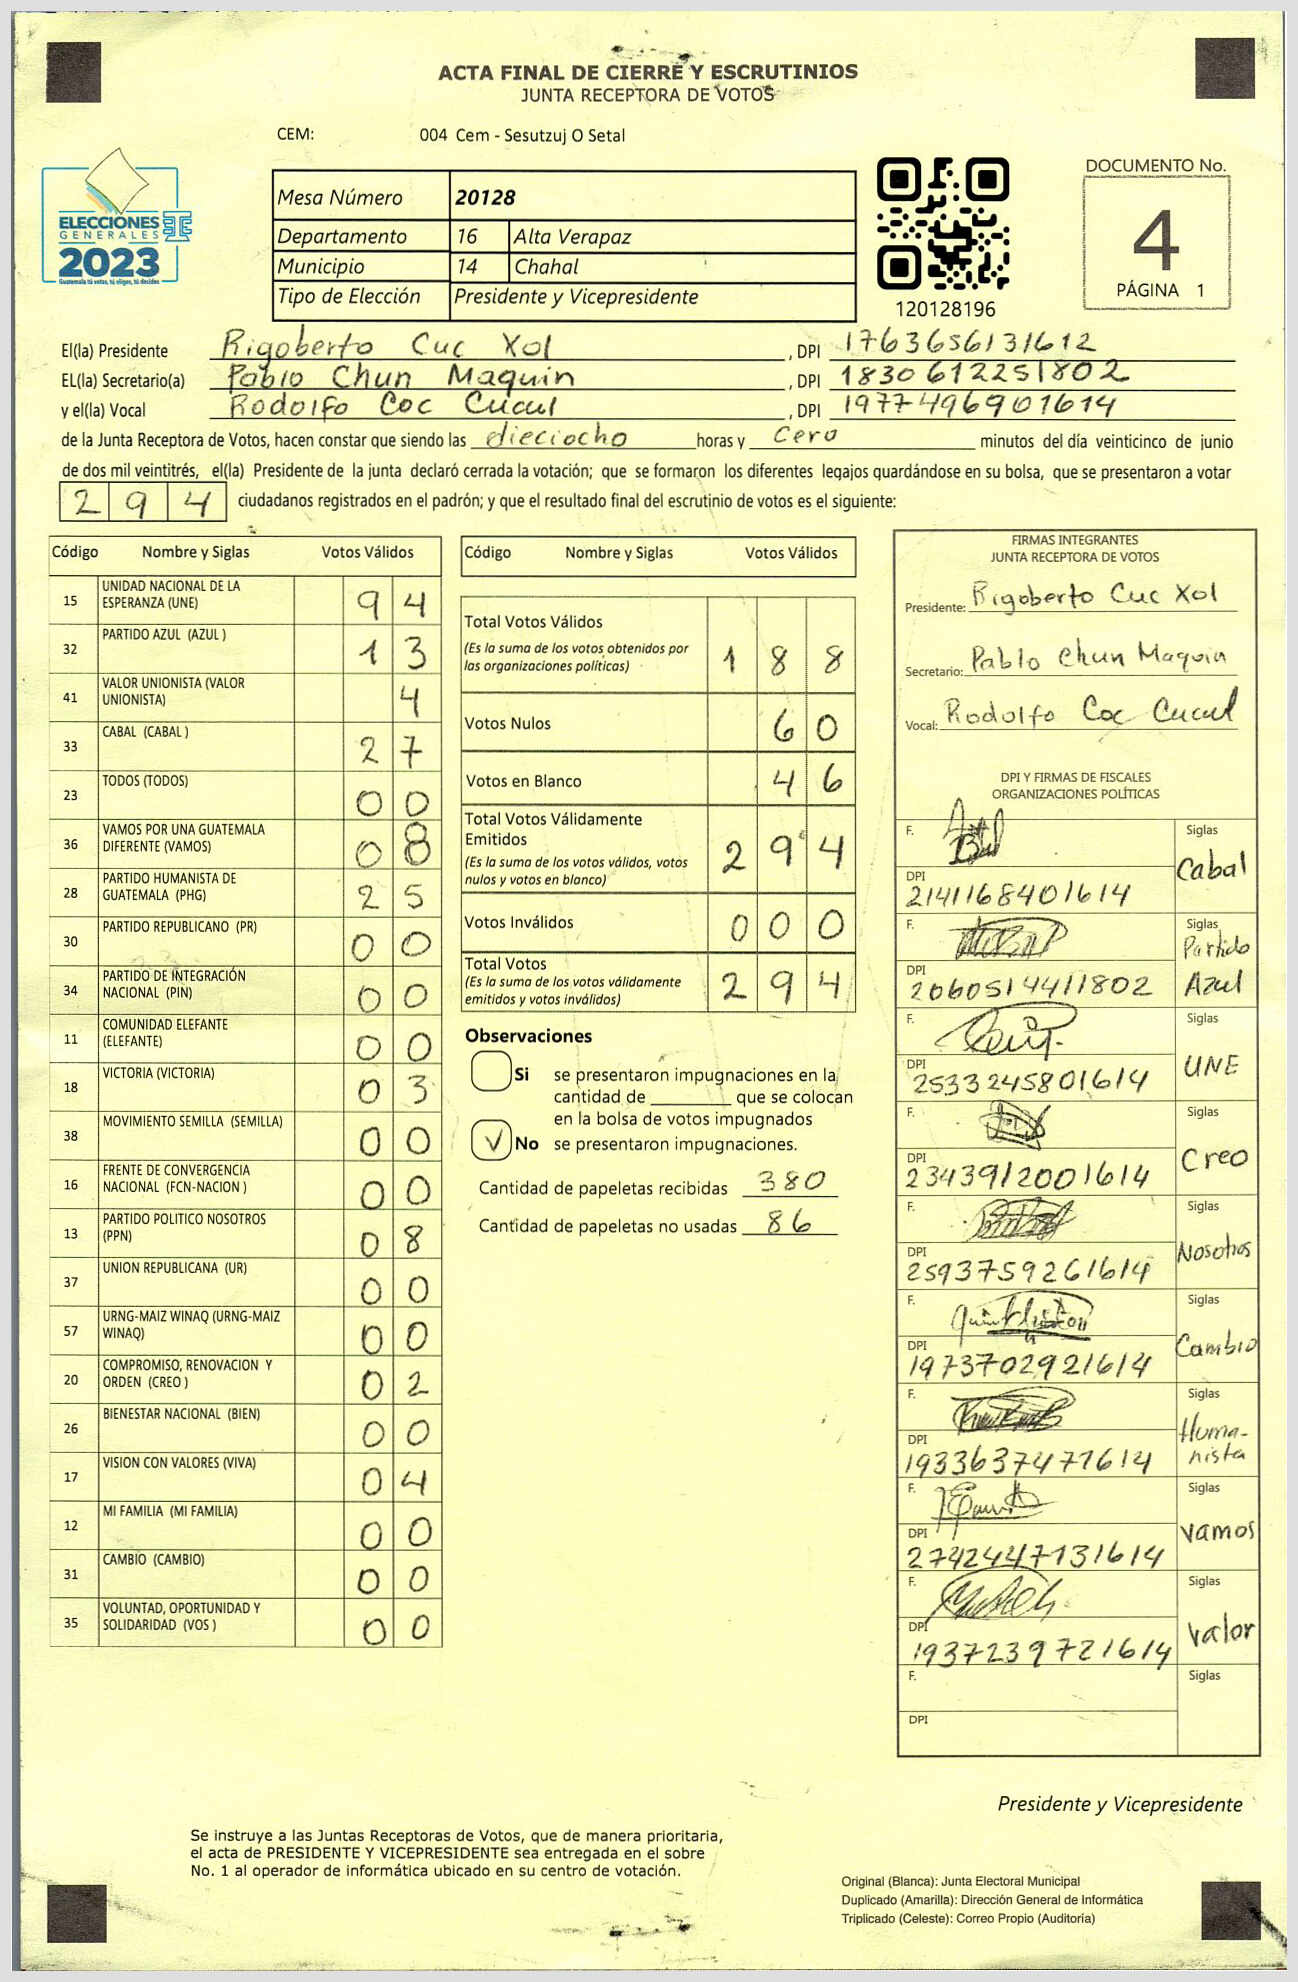 ACTA FINAL DE CIERRE Y ESCRUTINIOS
JUNTA RECEPTORA DE VOTOS
CEM: 004 Cem - Sesutzuj O Setal
ELECCIONES
GENERALES
2023
Guatemala tú votas, tú eliges, tú decides
Mesa Número 20128
Departamento 16 Alta Verapaz
Municipio 14 Chahal
Tipo de Elección Presidente y Vicepresidente
120128196
DOCUMENTO No.
4
PÁGINA 1
El(la) Presidente Rigoberto Cuc Xol , DPI 1763656131612
EL(la) Secretario(a) Pablo Chun Maquin , DPI 1830612251802
y el(la) Vocal Rodolfo Coc Cucul , DPI 1977496901614
de la Junta Receptora de Votos, hacen constar que siendo las dieciocho horas y cero minutos del día veinticinco de junio
de dos mil veintitrés, el(la) Presidente de la junta declaró cerrada la votación; que se formaron los diferentes legajos quardándose en su bolsa, que se presentaron a votar
294 ciudadanos registrados en el padrón; y que el resultado final del escrutinio de votos es el siguiente:
Código Nombre y Siglas Votos Válidos
15 UNIDAD NACIONAL DE LA
ESPERANZA (UNE) 94
32 PARTIDO AZUL (AZUL ) 13
41 VALOR UNIONISTA (VALOR
UNIONISTA) 4
33 CABAL (CABAL ) 27
23 TODOS (TODOS) 00
36 VAMOS POR UNA GUATEMALA
DIFERENTE (VAMOS) 08
28 PARTIDO HUMANISTA DE
GUATEMALA (PHG) 25
30 PARTIDO REPUBLICANO (PR) 00
34 PARTIDO DE INTEGRACIÓN
NACIONAL (PIN) 00
11 COMUNIDAD ELEFANTE
(ELEFANTE) 00
18 VICTORIA (VICTORIA) 03
38 MOVIMIENTO SEMILLA (SEMILLA) 00
16 FRENTE DE CONVERGENCIA
NACIONAL (FCN-NACION ) 00
13 PARTIDO POLITICO NOSOTROS
(PPN) 08
37 UNION REPUBLICANA (UR) 00
57 URNG-MAIZ WINAQ (URNG-MAIZ
WINAQ) 00
20 COMPROMISO, RENOVACION Y
ORDEN (CREO ) 02
26 BIENESTAR NACIONAL (BIEN) 00
17 VISION CON VALORES (VIVA) 04
12 MI FAMILIA (MI FAMILIA) 00
31 CAMBIO (CAMBIO) 00
35 VOLUNTAD, OPORTUNIDAD Y
SOLIDARIDAD (VOS ) 00
Código Nombre y Siglas Votos Válidos
Total Votos Válidos
(Es la suma de los votos obtenidos por
las organizaciones políticas) 188
Votos Nulos 60
Votos en Blanco 46
Total Votos Válidamente
Emitidos
(Es la suma de los votos válidos, votos
nulos y votos en blanco) 294
Votos Inválidos 000
Total Votos
(Es la suma de los votos válidamente
emitidos y votos inválidos) 294
Observaciones
Si se presentaron impugnaciones en la
cantidad de ________ que se colocan
en la bolsa de votos impugnados
√ No se presentaron impugnaciones.
Cantidad de papeletas recibidas 380
Cantidad de papeletas no usadas 86
FIRMAS INTEGRANTES
JUNTA RECEPTORA DE VOTOS
Presidente: Rigoberto Cuc Xol
Secretario: Pablo Chun Maquin
Vocal: Rodolfo Coc Cucul
DPI Y FIRMAS DE FISCALES
ORGANIZACIONES POLÍTICAS
F. Siglas
Cabal
DPI
2141168401614
F. Siglas
Partido
Azul
DPI
2060514411802
F. Siglas
UNE
DPI
2533245801614
F. Siglas
Creo
DPI
2343912001614
F. Siglas
Nosotros
DPI
2593759261614
F. Siglas
Cambio
DPI
1973702921614
F. Siglas
Huma-
nista
DPI
1933637471614
F. Siglas
vamos
DPI
2742447131614
F. Siglas
valor
DPI
1937239721614
F. Siglas
DPI
Presidente y Vicepresidente
Se instruye a las Juntas Receptoras de Votos, que de manera prioritaria,
el acta de PRESIDENTE Y VICEPRESIDENTE sea entregada en el sobre
No. 1 al operador de informática ubicado en su centro de votación.
Original (Blanca): Junta Electoral Municipal
Duplicado (Amarilla): Dirección General de Informática
Triplicado (Celeste): Correo Propio (Auditoría)